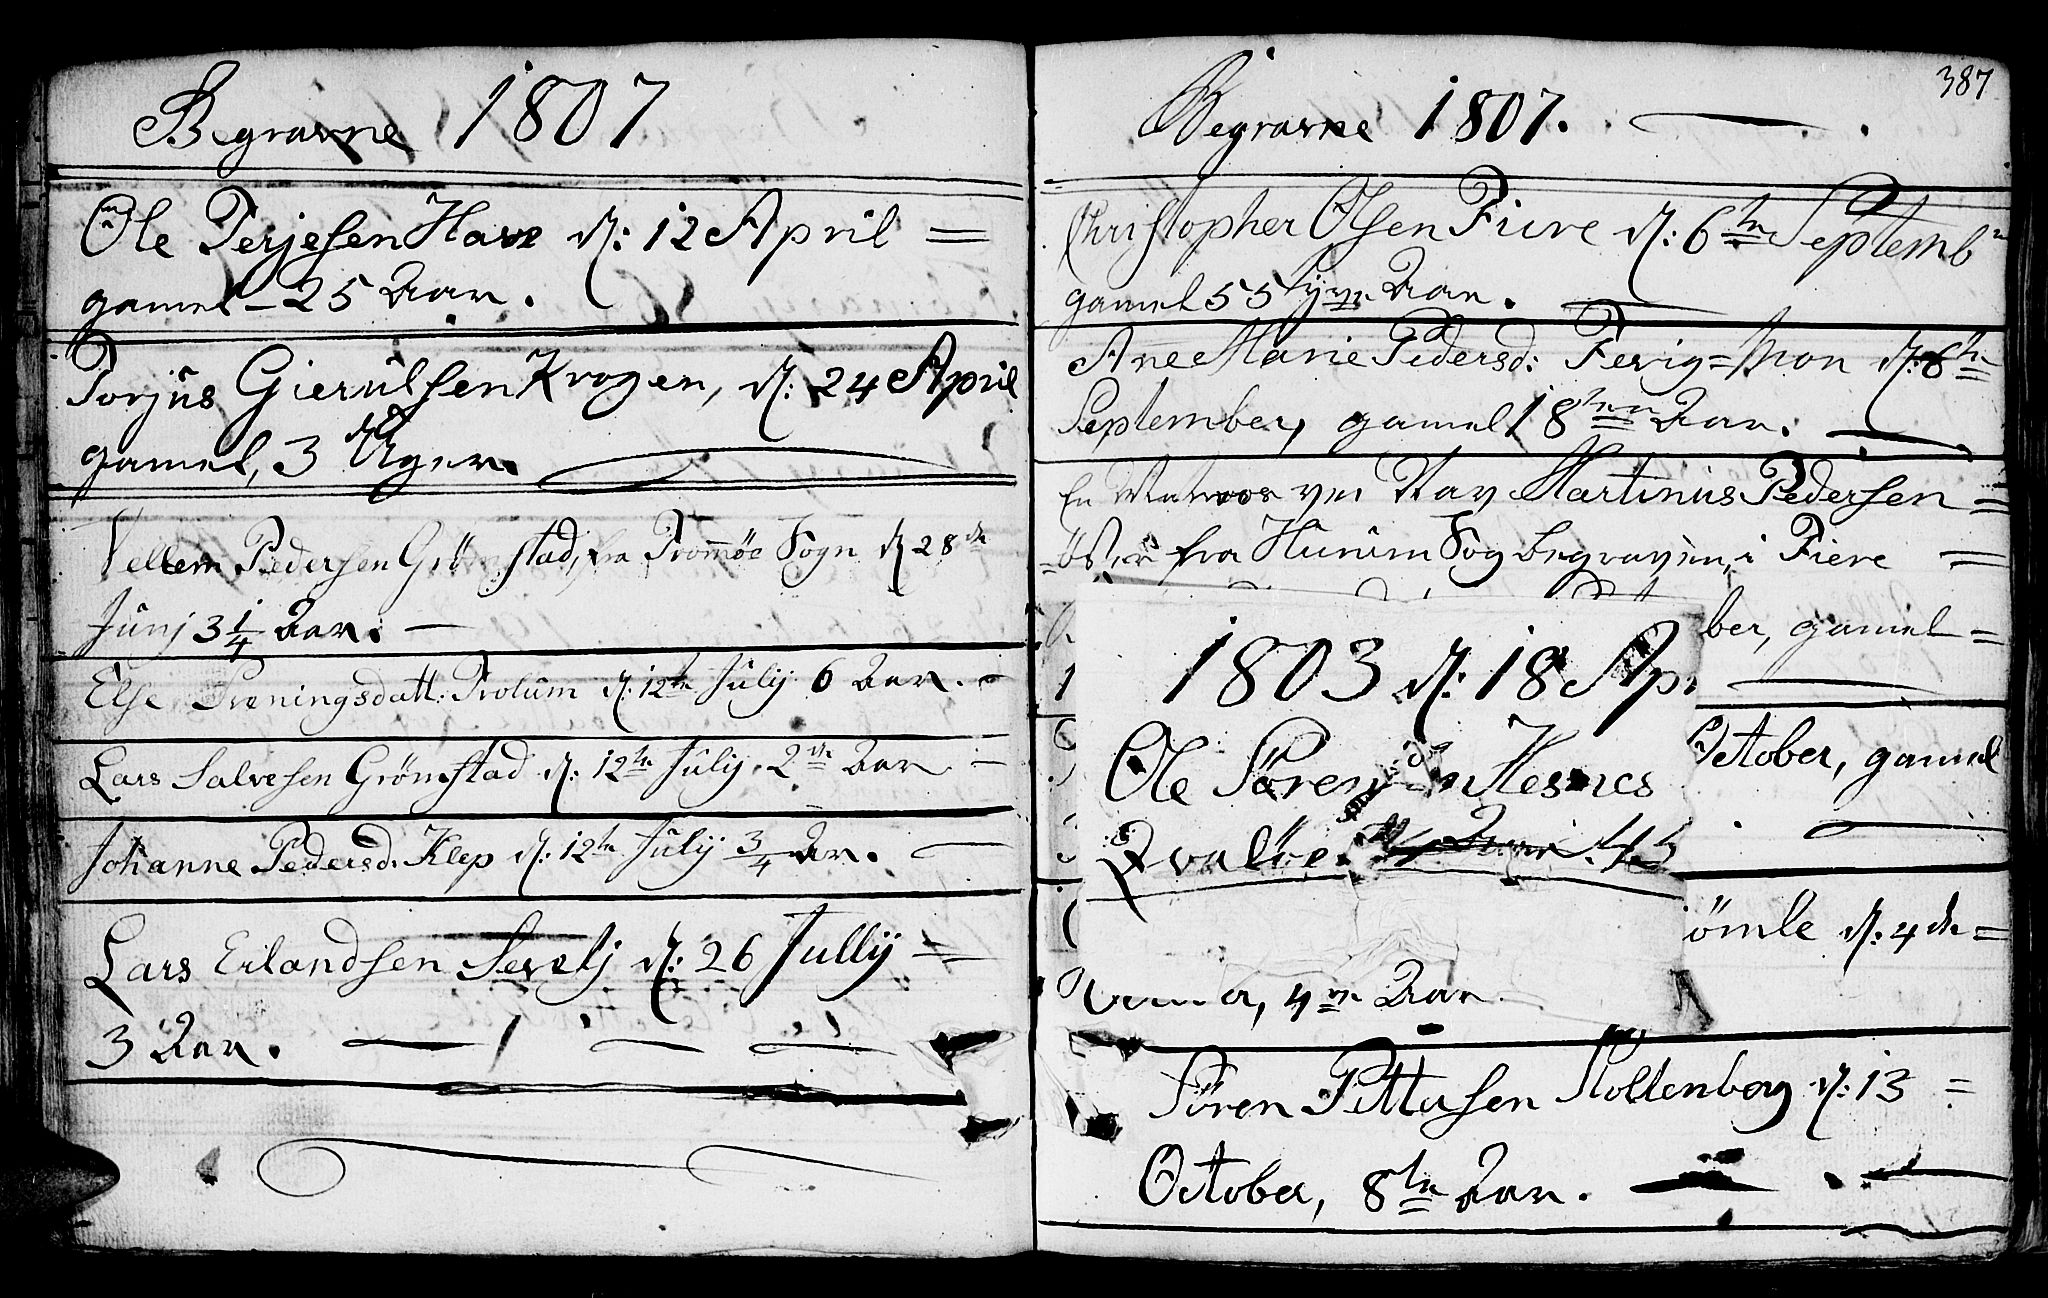 Begravne 1807
Ole Terjesen Have d: 12 April =
gamel - 25 Aar.
Torjus Gierulsen Krogen, d: 24 April
gamel, 3 Uger.
Vellem Pedersen Grömstad, fra Tromöe Sogn d 28de
Junj 3 1/4 Aar. —
Else Trøningsdatt: Trolum d: 12te Julij 6 Aar. -
Lars Salvesen Grömstad d: 12te Julij. 2de Aar -
Johanne Pedersd. Klep d: 12te Julij 3/4 Ar. —
Lars Erlandsen Servelj d: 26 Jullij =
3 Aar.
387
Begravne 1807.
Christopher Olsen Fiere d: 6te Septemb
gamel 55 Aar.
Ane Marie Pedersd: Ferig = Mon d: 6te
September, gamel 18ten Aar.
En Matroos Martinus Pedersen =
fra Hurum Sog begraven, i Fiere =
ber, gamel =
1803 d: 18 Ap
Ole Sören Hesnes
October, gamel
Qvalöe
ömle d: 4de =
4re Aar.
Sören Pettersen Stoltenborg d: 13 =
October, 8te Aar.